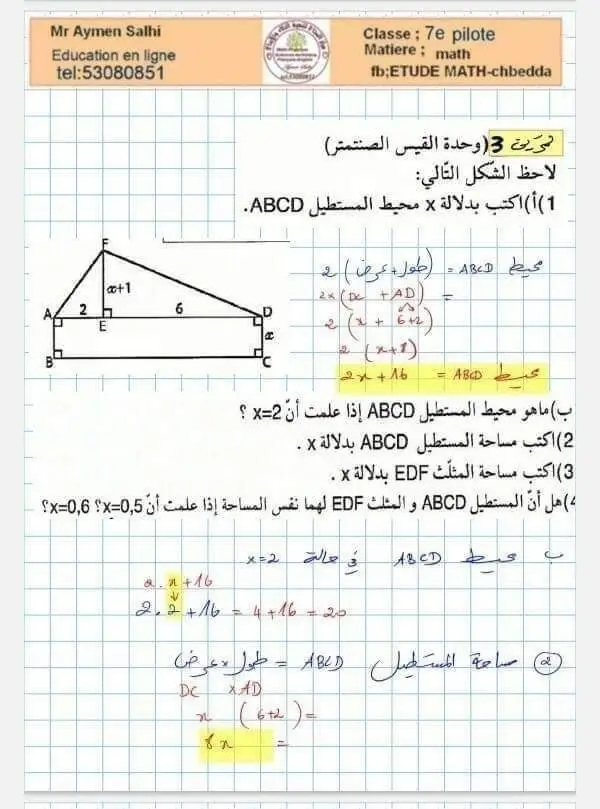 Mr Aymen Salhi
Education en ligne
tel:53080851
Classe ; 7e pilote
Matiere ; math
fb;ETUDE MATH-chbedda
تمرين 3 (وحدة القيس الصنتمتر)
لاحظ الشكل التّالي:
1)أ)اكتب بدلالة x محيط المستطيل ABCD.
F
x+1
A 2 E 6 D
x
B C
محيط ABCD = 2 (طول + عرض)
= 2x (DC + AD)
2 (x + 6+2)
2 (x+8)
محيط ABCD = 2x + 16
ب)ماهو محيط المستطيل ABCD إذا علمت أنّ x=2 ؟
2)اكتب مساحة المستطيل ABCD بدلالة x .
3)اكتب مساحة المثلّث EDF بدلالة x .
4)هل أنّ المستطيل ABCD و المثلث EDF لهما نفس المساحة إذا علمت أنّ x=0,5؟ x=0,6؟
ب محيط ABCD في حالة x=2
2.x+16
2.2+16 = 4+16 = 20
2 مساحة المستطيل ABCD = طول x عرض
DC x AD
= x (6+2)
= 8x